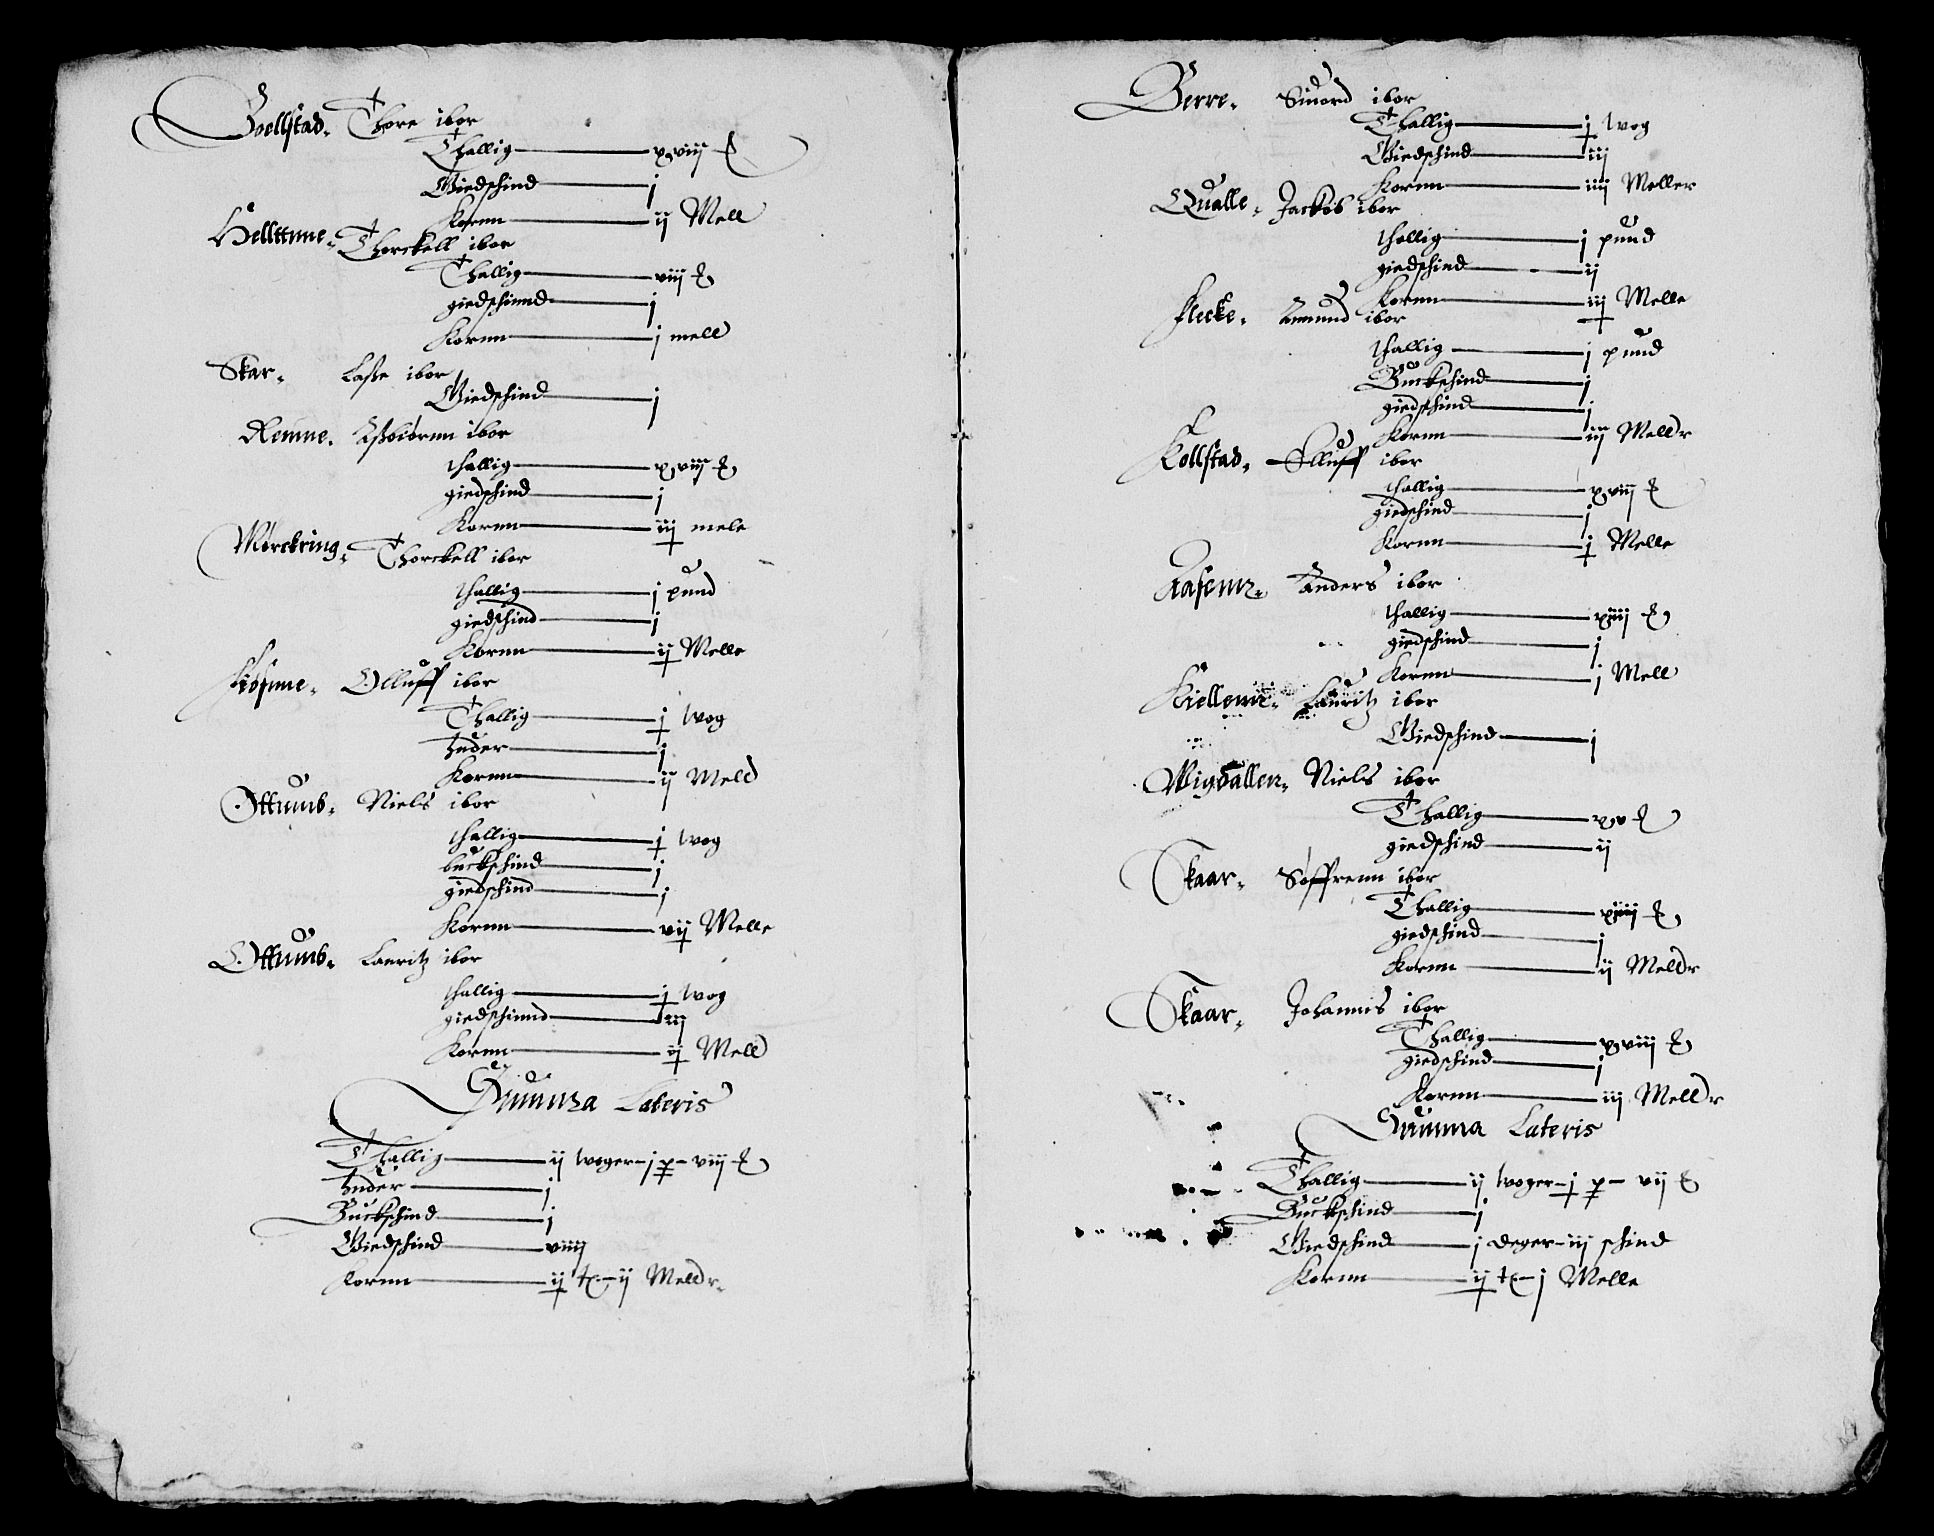 Goellstad. Thore ibor
Thallig xviij
Giedschind j
Kornn ij Mell
Hellttnne. Thorckell ibor
Thallig viij
giedschinnd j
Kornn j mell
Skar. Lasse ibor
Giedschind j
Remne. Asbiørnn ibor
thallig xviij
giedschind j
Kornn iij mele
Mørckring. Thorckell ibor
thallig j pund
giedschind j
Kornn ij Melle
Olluff ibor
Thallig j wog
huder j
Kornn ij Meld
Ottumb. Niels ibor
thallig j wog
buckschind j
giedschind j
Kornn vij Melle
Ottumb. Lauritz ibor
thallig j wog
giedschinnd iij
Kornn ij Mell
Summa Lateris
Thallig ij woger j p viij
huder j
Buckschind j
Giedschind viiij
Kornn ij ij Meldr.
Berre. Siuord ibor
Thallig j wog
Giedschind iij
Kornn iiij Meller
Qualle. Jackob ibor
thallig j pund
giedschind ij
Kornn iij Melle
Flecke. Amund ibor
thallig j pund
Buckschind j
giedschind j
Kornn iij Melldr
Kollstad. Olluff ibor
thallig xviij
giedschind j
Kornn j Melle
Anders ibor
thallig xiiij
giedschind j
Kornn j Mell
Lauritz ibor
Giedschind j
Migdallen. Niels ibor
Thallig xv
giedschind ij
Skaar. Søffrenn ibor
Thallig xiiij
giedschind j
Kornn ij Meldr
Skaar. Johannis ibor
Thallig xviij
giedschind j
Kornn iij Melldr
Summa Lateris
Thallig ij woger j p vij
Buckschind j
Giedschind j deger iij schind
Kornn ij j Melle